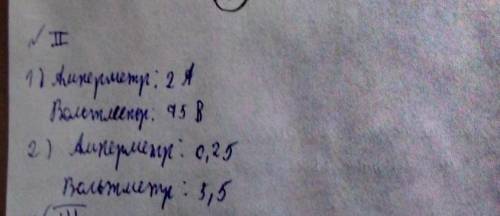 √ II
1) Амперметр: 2 А
Вольтметр: 75 В
2) Амперметр: 0,25
Вольтметр: 3,5
III